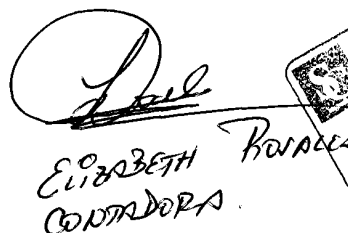 ELIZABETH ROSALES
CONTADORA.